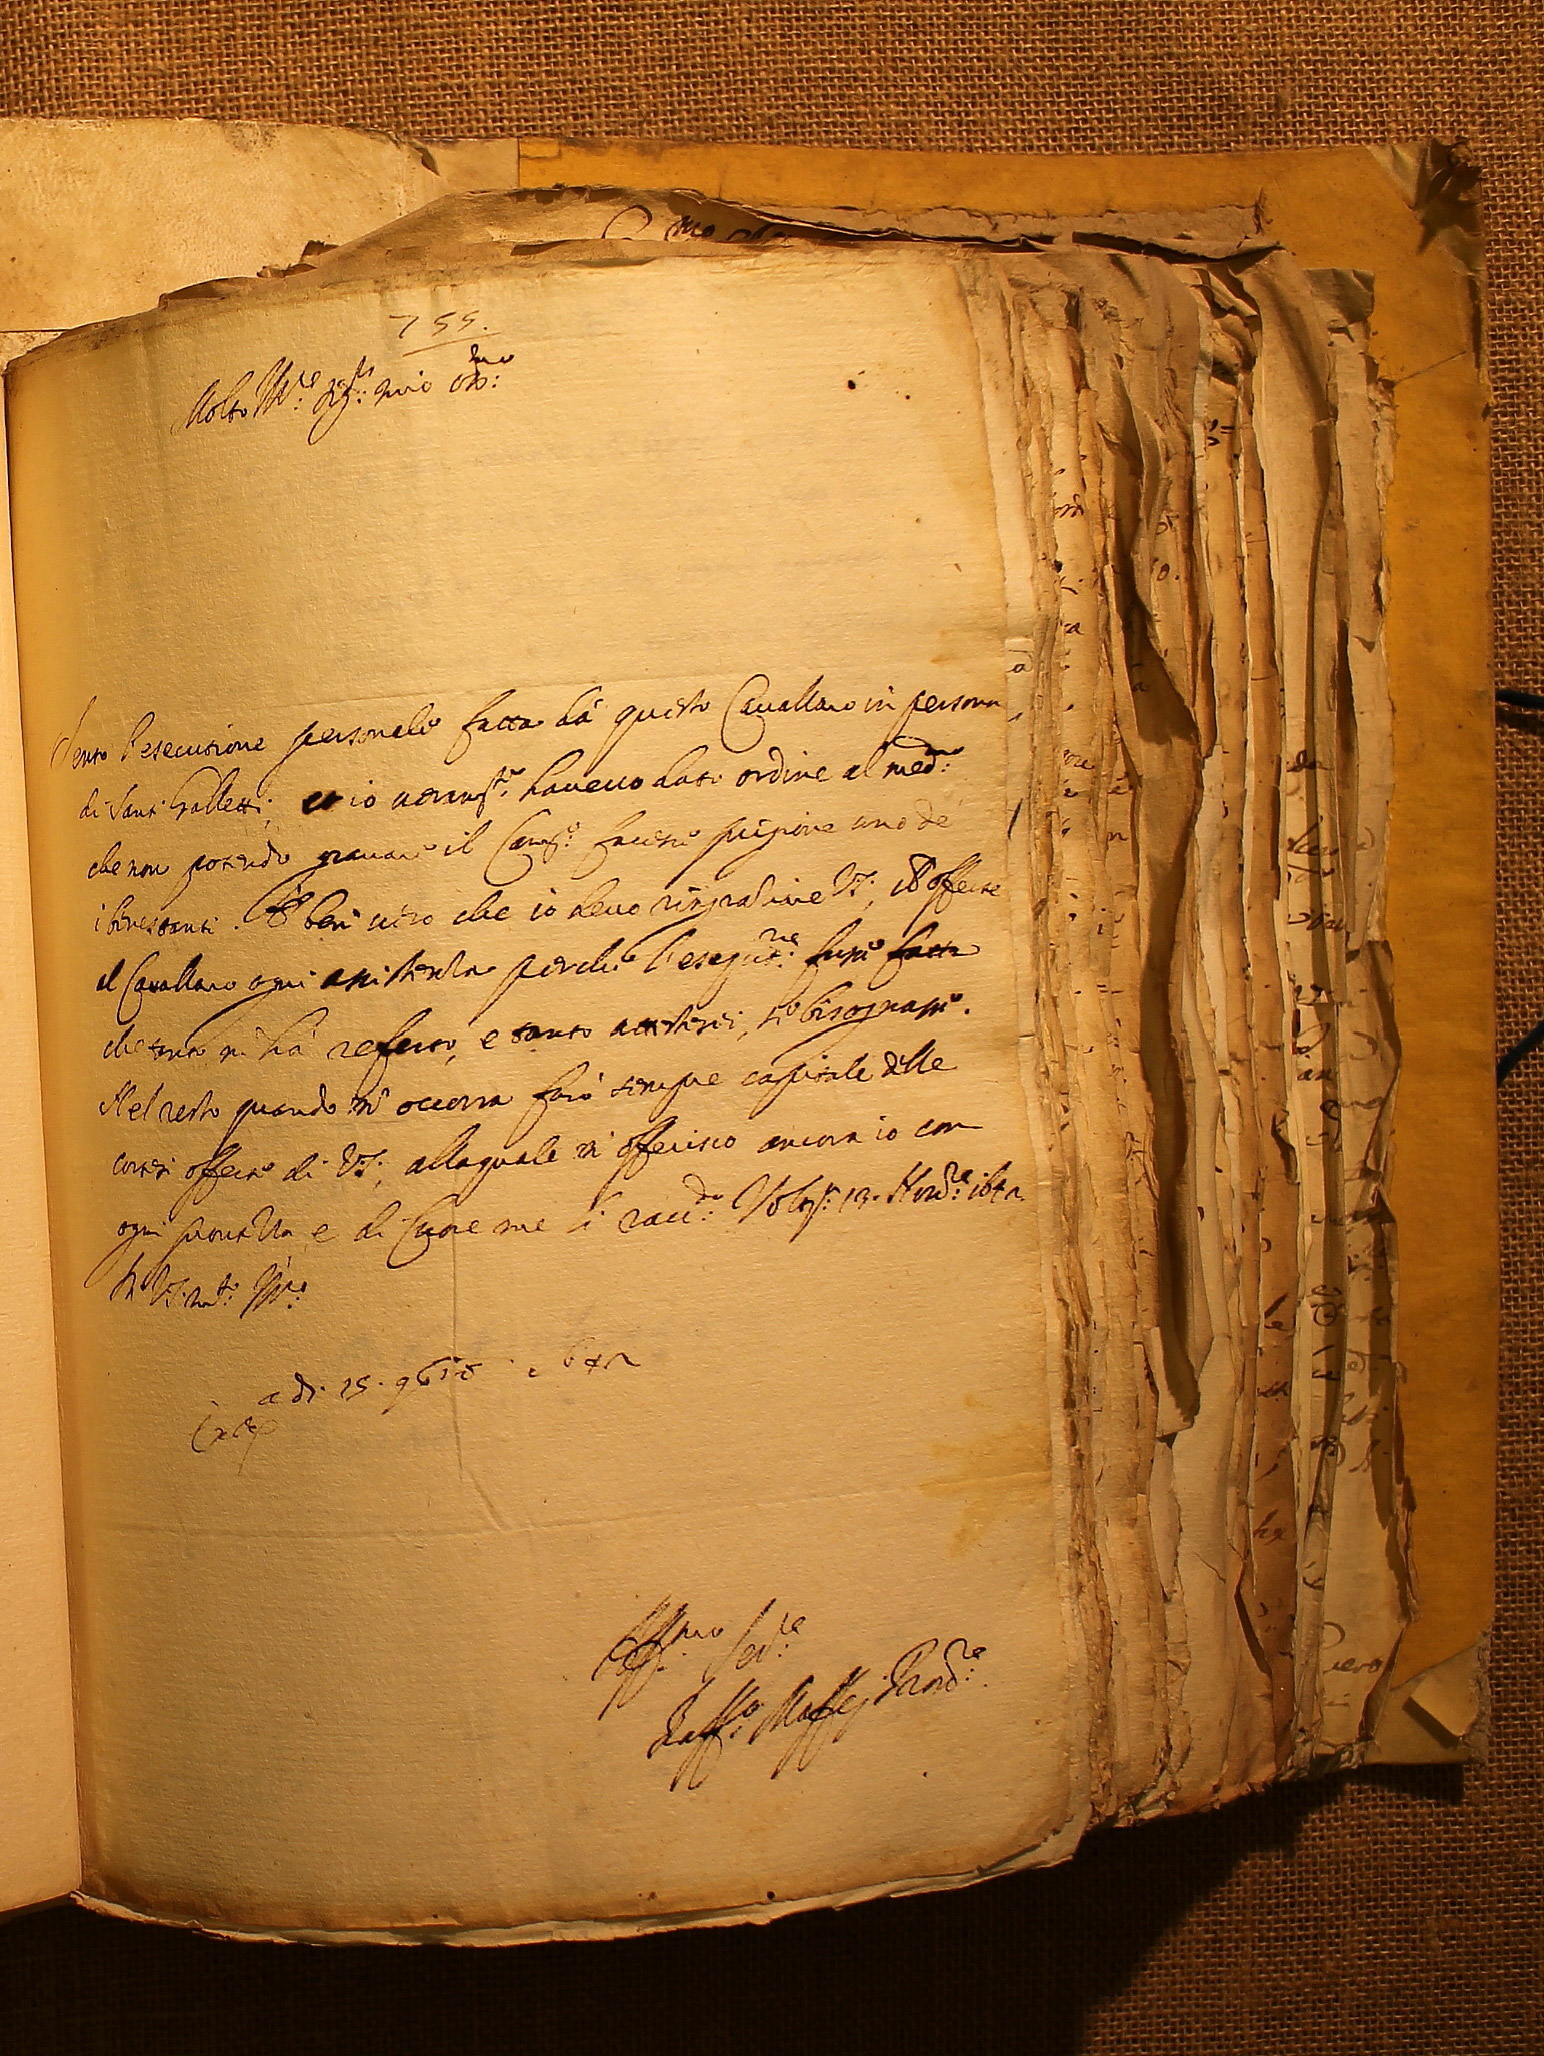 755.
Molto Ill.re Sig.r mio oss.mo
Sento l'esecuzione personale fatta dà questo Cavallaro in persona
di Santi Galletti, et io havevo dato ordine al med.mo
che non potendo gravare il Camp.o facessi prigione uno de
i benestanti. È ben vero che io devo ringratiare V.S. ch'offerse
al Cavallaro ogni assistenza perche l'esequt.ne fussi fatta
che tanto m'hà referto, e tanto attesterei, se bisognassi.
Nel resto quando m'occorra farò sempre capitale delle
cortesi offerte di V.S. allaquale m'offerisco ancora io con
ogni prontezza, e di Cuore me li racc.do Volt.a 13. Nov.re 1642
Di V.S. m.to Ill.re
a dì 15. 9bre 1642
Aff.mo Ser.re
Raff.o Maffei Prov.re